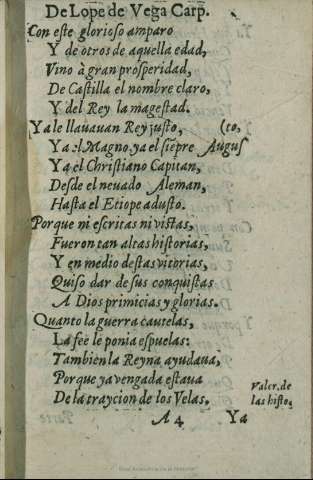 De Lope de Vega Carp.
Con este glorioso amparo
Y de otros de aquella edad,
Vino à gran prosperidad,
De Castilla el nombre claro,
Y del Rey la magestad.
Ya le llauauan Rey justo, (to,
Ya el Magno, ya el siẽpre Augus
Ya el Christiano Capitan,
Desde el neuado Aleman,
Hasta el Etiope adusto.
Porque ni escritas ni vistas,
Fueron tan altas historias,
Y en medio destas vitorias,
Quiso dar de sus conquistas
A Dios primicias y glorias.
Quanto la guerra cautelas,
La fee le ponia espuelas:
Tambien la Reyna ayudaua,
Porque ya vengada estaua
De la trayçion de los Velas.
Valer. de
las histo.
A 4 Ya